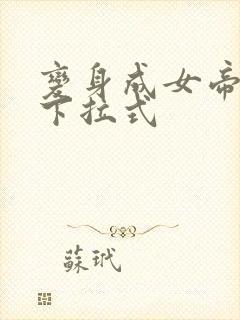 變身成女帝
下拉式
蘇玳